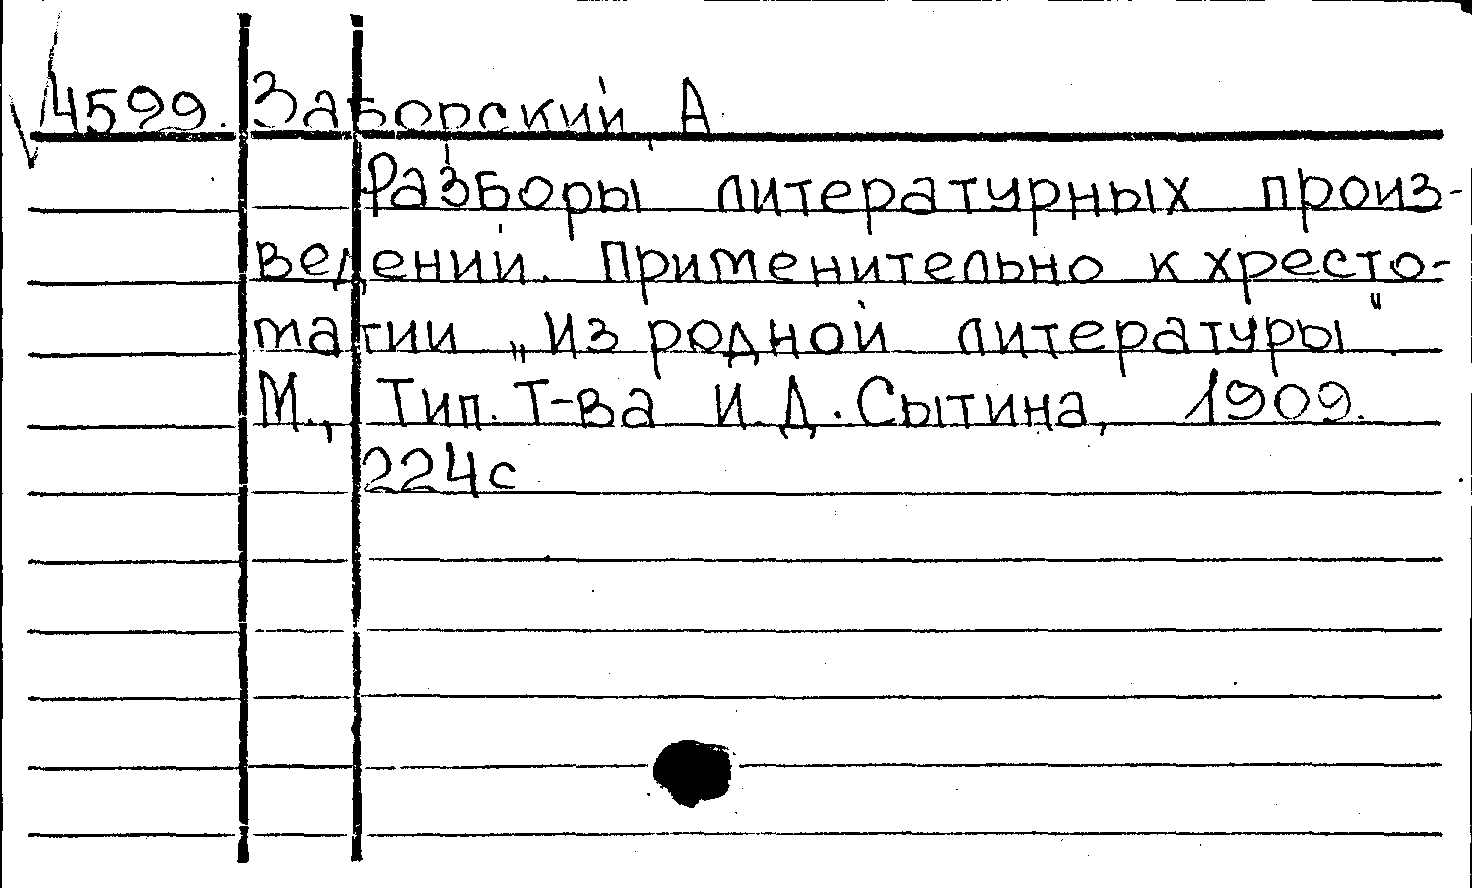 4599. Заборский, А.
Разборы литературных произ-
ведений. Применительно к хресто-
матии „Из родной литературы".
М., Тип. Т-ва И.Д. Сытина, 1909.
224с